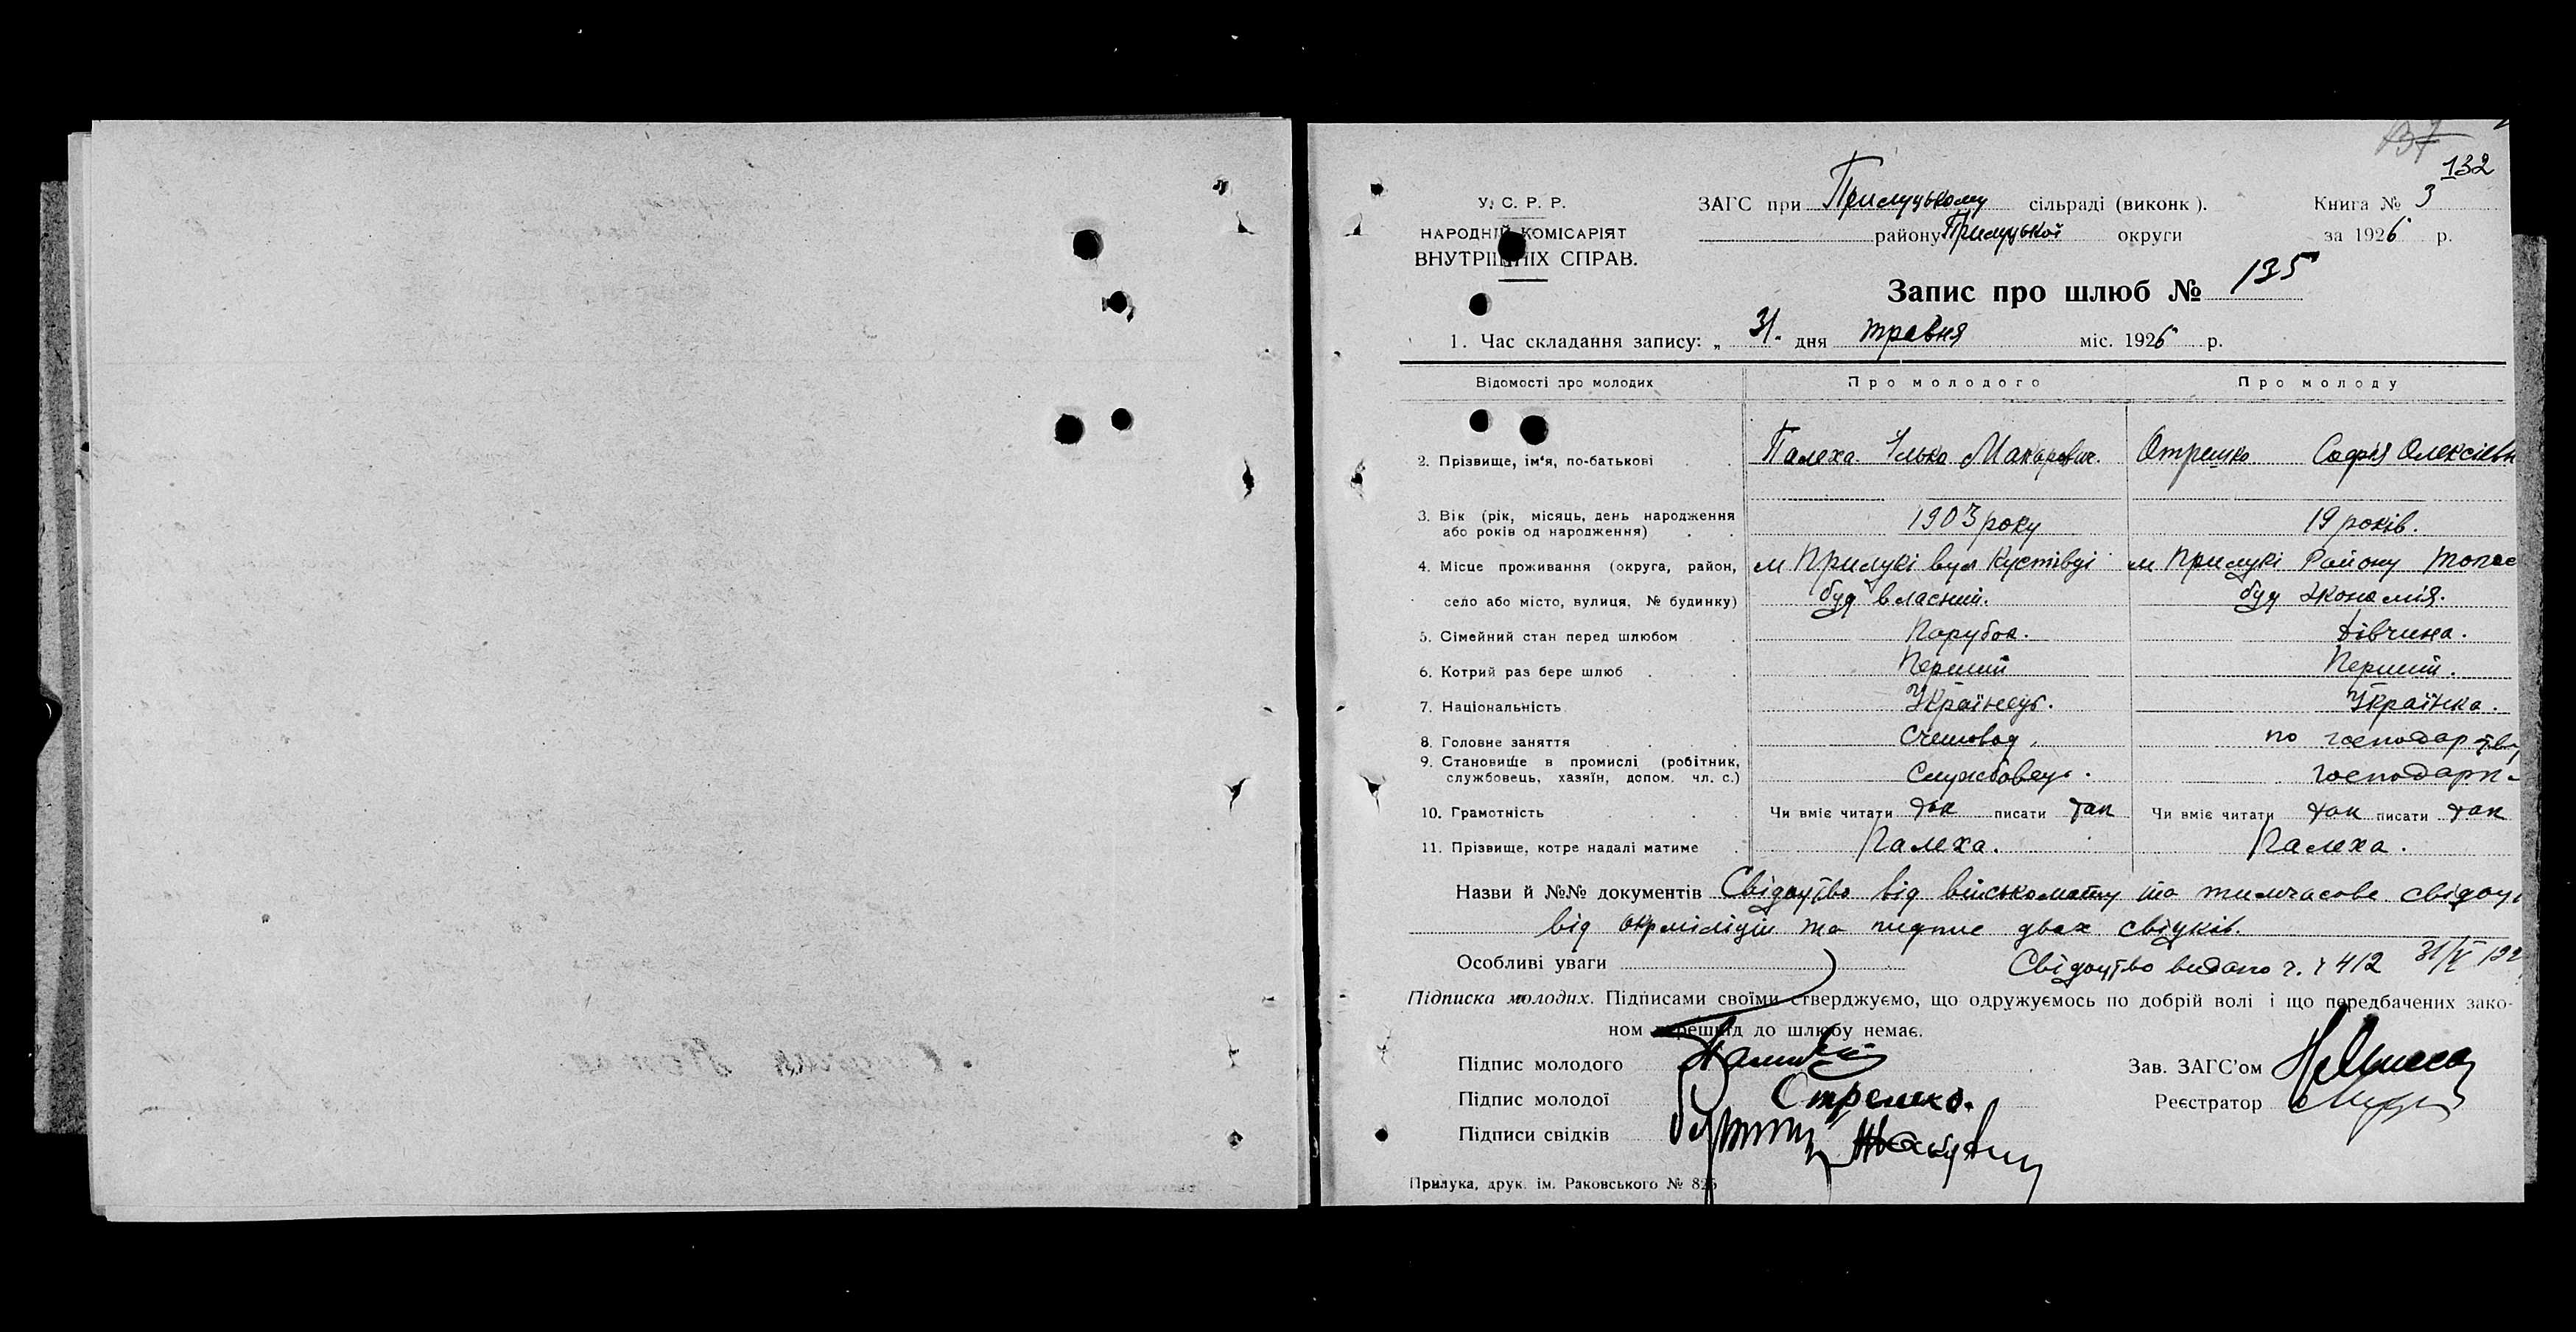 132
У. С. Р. Р.
НАРОДНІЙ КОМІСАРІЯТ
ВНУТРІШНІХ СПРАВ.
ЗАГС при Прилуцькому сільраді (виконк ).
району Прилуцької округи
Книга № 3
за 1926 р.
Запис про шлюб № 135
1. Час складання запису: „ 31. дня травня міс. 1926 р.
Відомості про молодих Про молодого Про молоду
2. Прізвище, ім'я, по-батькові Палеха Ілько Макарович. Отрешко Софія Олексіевн
3. Вік (рік, місяць, день народження 1903 року 19 років.
або років од народження)
4. Місце проживання (округа, район, м Прилукі вул Кустівці м Прилукі Району
село або місто, вулиця, № будинку) буд власний. буд Экономія.
5. Сімейний стан перед шлюбом Парубок. Дівчина.
6. Котрий раз бере шлюб Перший Перший.
7. Національність Українець. Українка.
8. Головне заняття Счетовод. по господарству
9. Становище в промислі (робітник, Службовець. господарк
службовець, хазяїн, допом. чл. с.)
10. Грамотність Чи вміє читати так писати так Чи вміє читати так писати так
11. Прізвище, котре надалі матиме Палеха. Палеха.
Назви й №№ документів Свідоцтво від військомату та тимчасове свідоц
від окрміліціи та підпис двох свідків.
Особливі уваги Свідоцтво видано ч. 1412 31/V 192
Підписка молодих. Підписами своїми стверджуємо, що одружуємось по добрій волі і що передбачених зако-
ном перешкід до шлюбу немає.
Підпис молодого
Зав. ЗАГС'ом
Підпис молодої Отрешко.
Реєстратор
Підписи свідків
Прилука, друк. ім. Раковського № 825